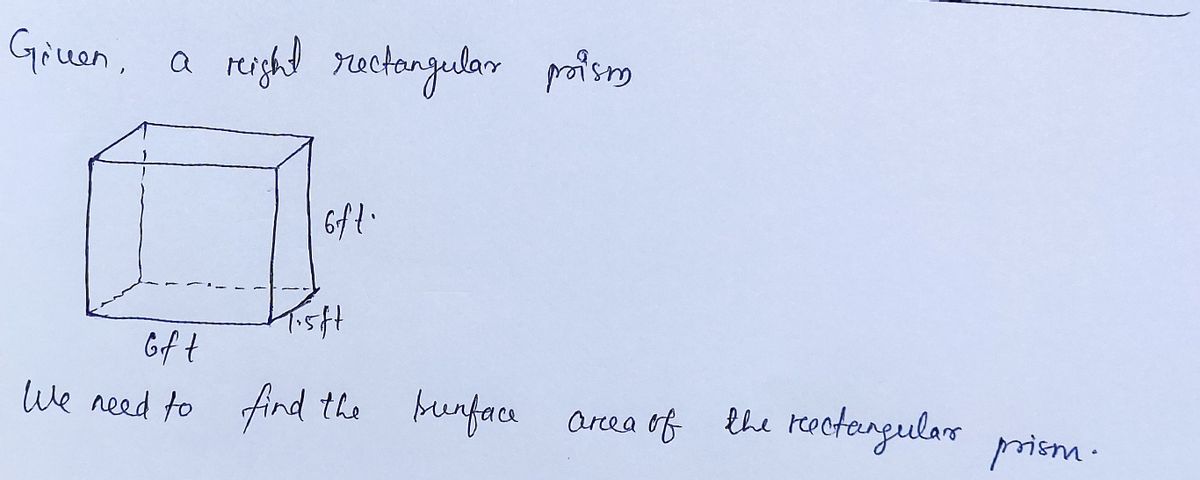 Given, a right rectangular prism
6ft.
1.5ft
6ft
We need to find the surface area of the rectangular prism.